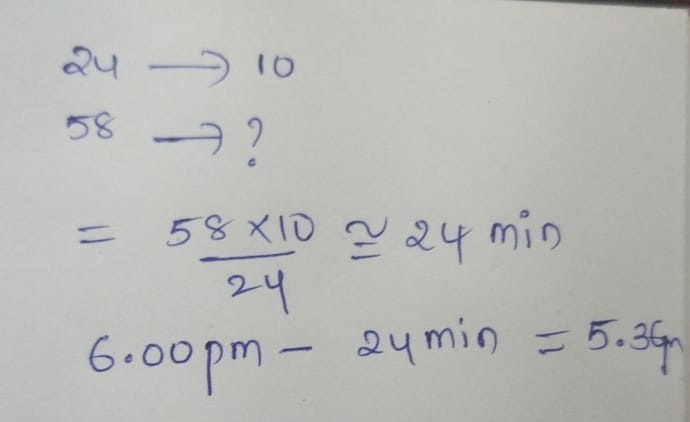 24 → 10
58 → ?
= 58×10 ≅ 24 min
24
6.00pm - 24 min = 5.36pm